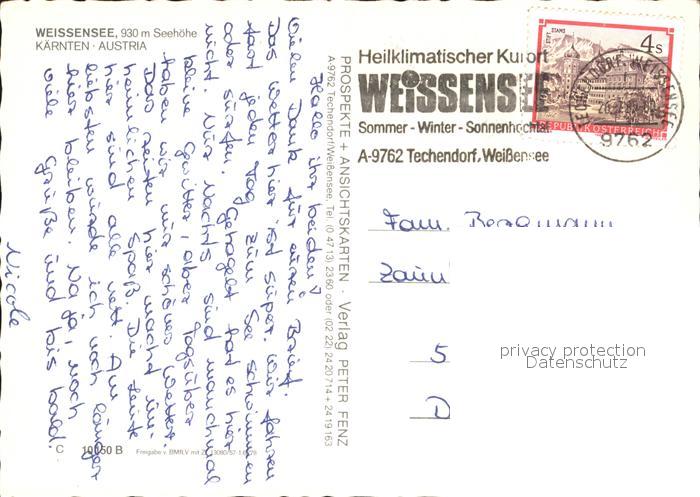 WEISSENSEE, 930 m Seehöhe
KÄRNTEN · AUSTRIA
Hallo ihr beiden!
Vielen Dank für euren Brief.
Das Wetter hier ist super. Wir fahren
fast jeden Tag zum See schwimmen
oder surfen. Gehagelt hat es hier
nicht. Nur Nachts sind manchmal
kleine Gewitter, aber Tagsüber
haben wir nur schönes Wetter.
Das reiten hier macht un-
heimlichen Spaß. Die Leute
hier sind alle nett. Am
liebsten würde ich noch länger
hier bleiben. Na ja, noch
viele Grüße und bis bald.
Nicole
C 10050 B
Freigabe v. BMfLV mit Zl.
PROSPEKTE + ANSICHTSKARTEN · Verlag PETER FENZ
A-9762 Techendorf/Weißensee, Tel. (0 47 13) 23 60 oder (02 22) 24 20 714 + 24 19 163
Heilklimatischer Kurort
WEISSENSEE
Sommer - Winter - Sonnenhochtal
A-9762 Techendorf, Weißensee
STIFT STAMS
4 S
REPUBLIK ÖSTERREICH
WEISSENSEE
9762
Fam. Bergmann
Zaun
5
D
privacy protection
Datenschutz